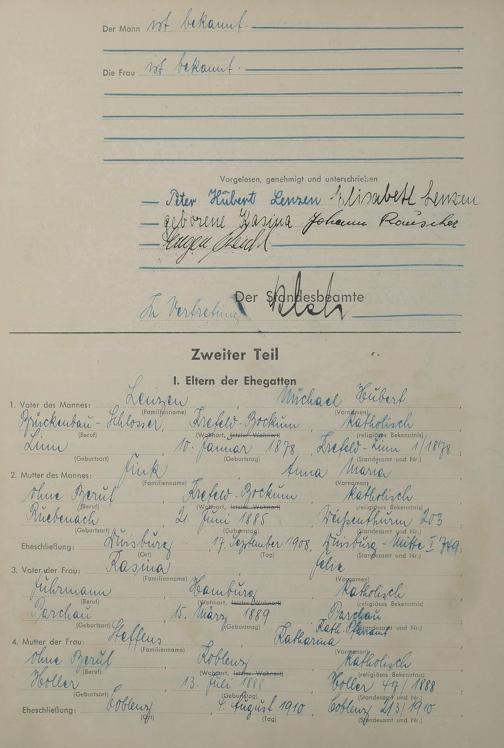 Der Mann ist bekannt.
Die Frau ist bekannt.
Vorgelesen, genehmigt und unterschrieben
Peter Hubert Lenzen Elisabeth Lenzen
geborene Kasina Johann Rauscher
Eugen
Der Standesbeamte
In Vertretung
Zweiter Teil
I. Eltern der Ehegatten
1. Vater des Mannes: Lenzen Michael Hubert
(Familienname) (Vornamen)
Brückenbau-Schlosser, Krefeld-Bockum, katholisch
(Beruf) (Wohnort, letzter Wohnort) (religiöses Bekenntnis)
Linn 10. Januar 1878, Krefeld-Linn 1/1878
(Geburtsort) (Geburtstag) (Standesamt und Nr.)
2. Mutter des Mannes: Fink Anna Maria
(Familienname) (Vornamen)
ohne Beruf Krefeld-Bockum katholisch
(Beruf) (Wohnort, letzter Wohnort) (religiöses Bekenntnis)
Ruebenach 21. Juni 1885, Weißenthurm 203
(Geburtsort) (Geburtstag) (Standesamt und Nr.)
Eheschließung: Duisburg 17. September 1908, Duisburg-Mitte I 749.
(Ort) (Tag) (Standesamt und Nr.)
3. Vater der Frau: Kasina Felix
(Familienname) (Vornamen)
Fuhrmann Hamburg katholisch
(Beruf) (Wohnort, letzter Wohnort) (religiöses Bekenntnis)
Parchau 15. März 1889 Parchau
(Geburtsort) (Geburtstag) Kath. Pfarramt
(Standesamt und Nr.)
4. Mutter der Frau: Steffens Katharina
(Familienname) (Vornamen)
ohne Beruf Koblenz katholisch
(Beruf) (Wohnort, letzter Wohnort) (religiöses Bekenntnis)
Holler 13. Juli 1888 Holler 49/1888
(Geburtsort) (Geburtstag) (Standesamt und Nr.)
Eheschließung: Coblenz 4. August 1910, Coblenz 213/1910
(Ort) (Tag) (Standesamt und Nr.)